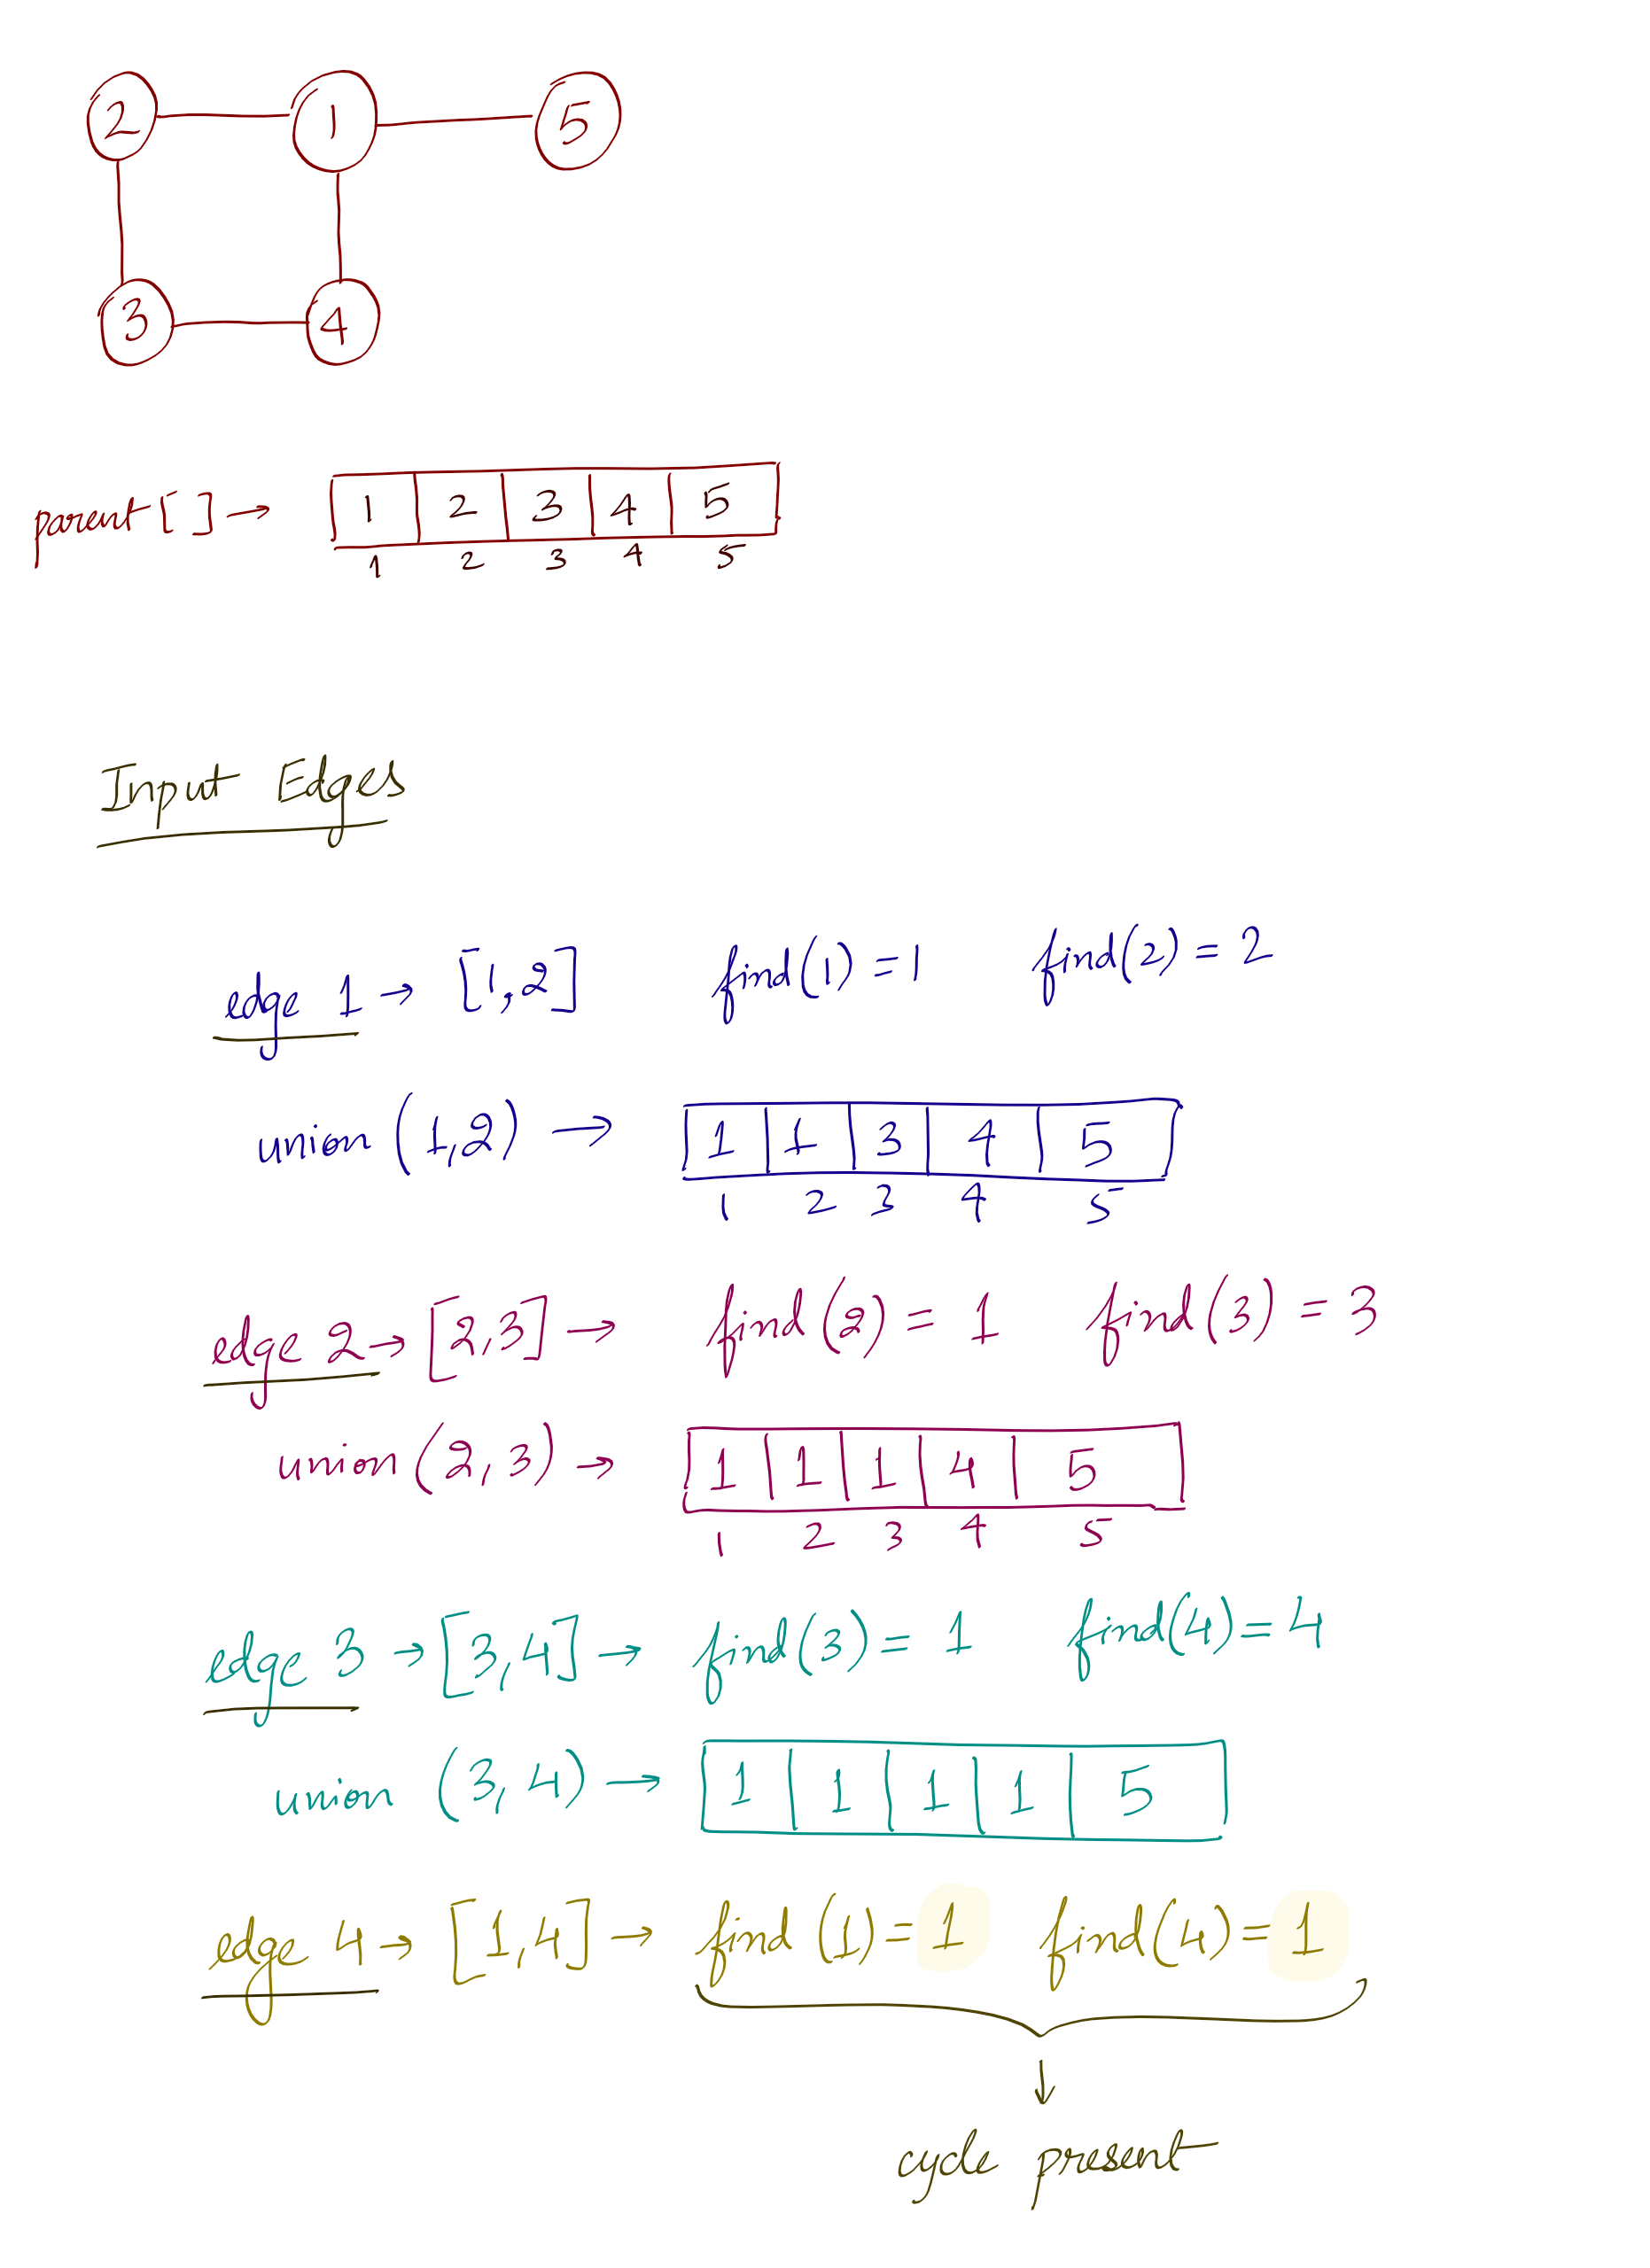 2 1 5
3 4
parent [ ] → 1 2 3 4 5
1 2 3 4 5
Input Edges
edge 1 → [1,2] find(1) = 1 find(2) = 2
union (1,2) → 1 1 3 4 5
1 2 3 4 5
edge 2 → [2,3] → find(2) = 1 find(3) = 3
union (2,3) → 1 1 1 4 5
1 2 3 4 5
edge 3 → [3,4] → find(3) = 1 find(4) = 4
union (3,4) → 1 1 1 1 5
edge 4 → [1,4] → find (1) = 1 find(4) = 1
cycle present